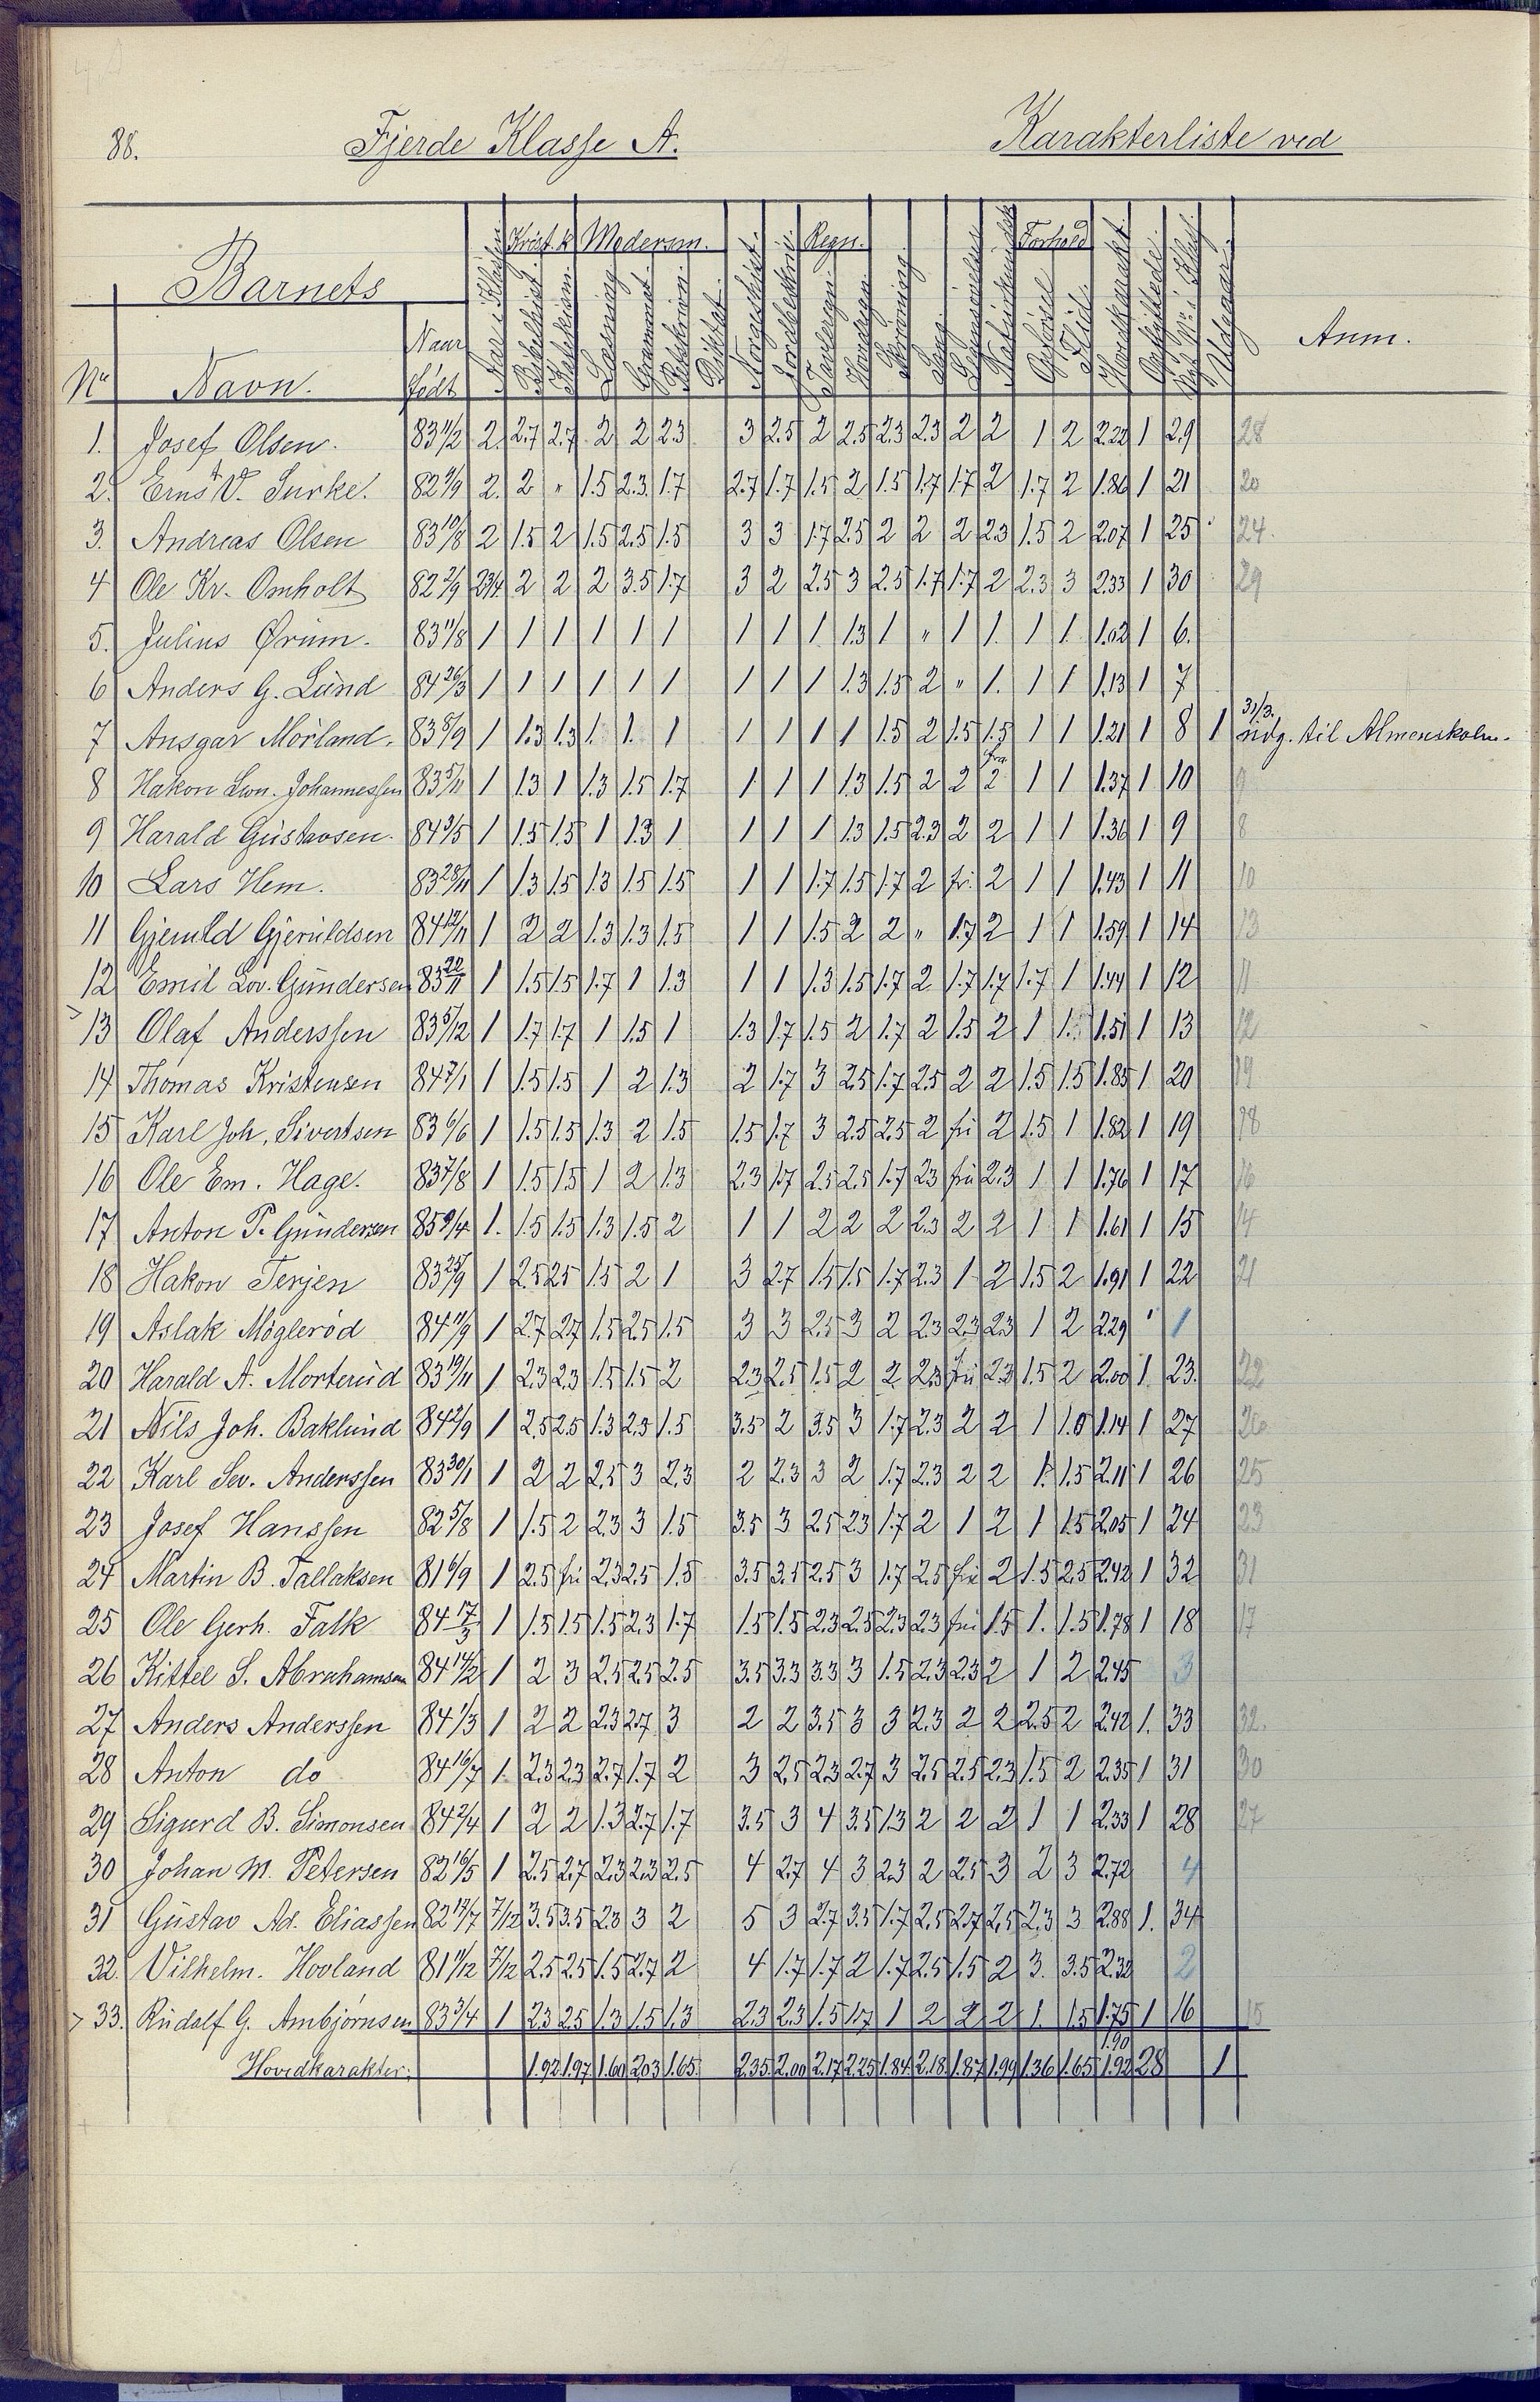 88. Fjerde Klasse A. Karakterliste ved
Krist.k. Modersm. Regn. Forhold
Barnets
No Navn. Naar født Aar i Klassen Bibelhist. Katekism. Læsning Grammat. Retskrivn. Diktat. Norgeshist. Jordbeskriv. Tavleregn. Hovedregn. Skrivning Sang Legemsøvelser Opførsel Flid Hovedkarakt. Opflyttede Udgaar. Anm.
1. Josef Olsen. 83 11/2 2. 2.7 2.7 2 2 2.3 3 2.5 2 2.5 2.3 2.3 2 2 1 2 2.22 1 29 28
2. Ernst V. Surke. 82 9/9 2. 2 " 1.5 2.3. 1.7 2.7 1.7 1.5 2 1.5 1.7 1.7 2 1.7 2 1.86 1 21 20
3. Andreas Olsen 83 10/8 2 1.5 2 1.5 2.5 1.5 3 3 1.7 2.5 2 2 2 2.3 1.5 2 2.07 1 25 24.
4 Ole Kr. Omholt 82 2/9 2 3/4 2 2 2 3.5 1.7 3 2 2.5 3 2.5 1.7 1.7 2 2.3 3 2.33 1 30 29
5. Julius Ørum. 83 11/8 1 1 1 1 1 1 1 1 1 1.3 1 " 1 1. 1 1. 1.02 1 6.
6 Anders G. Lund 84 26/3 1 1 1 1 1 1 1 1 1 1.3 1.5 2 " 1. 1 1 1.13 1 7
7 Ansgar Mörland. 83 8/9 1 1.3 1.3 1. 1. 1 1 1 1 1 1.5 2 1.5 1.5 1 1 1.21 1 8 1 31/3. udg. til Almenskolen.
8 Hakon Lun. Johannessen 83 5/11 1 1.3 1 1.3 1.5 1.7 1 1 1 1.3 1.5 2 2 2 1 1 1.37 1 10 9
9 Harald Gustavsen. 84 3/5 1 1.5 1.5 1 1.3 1 1 1 1 1.3 1.5 2.3 2 2 1 1 1.36 1 9 8
10 Lars Hem. 83 28/11 1 1.3 1.5 1.3 1.5 1.5 1 1 1.7 1.5 1.7 2 fri. 2 1 1 1.43 1 11 10
11 Gjeruld Gjeruldsen 84 12/11 1 2 2 1.3 1.3 1.5 1 1 1.5 2 2 " 1.7 2 1 1 1.59 1 14 13
12 Emil Lov. Gundersen 83 20/11 1 1.5 1.5 1.7 1 1.3 1 1 1.3 1.5 1.7 2 1.7 1.7 1.7 1 1.44 1 12 11
> 13 Olaf Anderssen 83 5/12 1 1.7 1.7 1 1.5 1 1.3 1.7 1.5 2 1.7 2 1.5 2 1 1. 1.51 1 13 12
14 Thomas Kristensen 84 7/1 1 1.5 1.5 1 2 1.3 2 1.7 3 2.5 1.7 2.5 2 2 1.5 1.5 1.85 1 20 19
15 Karl Joh. Sivertsen 83 6/6 1 1.5 1.5 1.3 2 1.5 1.5 1.7 3 2.5 2.5 2 fri 2 1.5 1 1.82 1 19 18
16 Ole Em. Hage. 83 7/8 1 1.5 1.5 1 2 1.3 2.3 1.7 2.5 2.5 1.7 2.3 fri 2.3 1 1 1.76 1 17 16
17 Anton P. Gundersen 85 9/4 1. 1.5 1.5 1.3 1.5 2 1 1 2 2 2 2.3 2 2 1 1 1.61 1 15 14
18 Hakon Terjen 83 25/9 1 2.5 2.5 1.5 2 1 3 2.7 1.5 1.5 1.7 2.3 1 2 1.5 2 1.91 1 22 21
19 Aslak Mögleröd 84 11/9 1 2.7 2.7 1.5 2.5 1.5 3 3 2.5 3 2 2.3 2.3 2.3 1 2 2.29 1
20 Harald A. Morterud 83 19/11 1 2.3 2.3 1.5 1.5 2 2.3 2.5 1.5 2 2 2.3 fri 2.3 1.5 2 2.00 1. 23. 22
21 Nils Joh. Baklund 84 2/9 1 2.5 2.5 1.3 2.5 1.5 3.5 2 3.5 3 1.7 2.3 2 2 1 1.0 1.14 1 27 26
22 Karl Sev. Anderssen 83 30/1 1 2 2 2.5 3 2.3 2 2.3 3 2 1.7 2.3 2 2 1. 1.5 2.11 1 26 25
23 Josef Hanssen 82 5/8 1 1.5 2 2.3 3 1.5 3.5 3 2.5 2.3 1.7 2 1 2 1 1.5 2.05 1 24 23
24 Martin B. Tallaksen 81 6/9 1 2.5 fri 2.3 2.5 1.5 3.5 3.5 2.5 3 1.7 2.5 fri 2 1.5 2.5 2.42 1 32 31
25 Ole Gerh. Falk 84 17/3 1 1.5 1.5 1.5 2.3 1.7 1.5 1.5 2.3 2.5 2.3 2.3 fri 1.5 1. 1.5 1.78 1 18 17
26 Kittel S. Abrahamsen 84 14/2 1 2 3 2.5 2.5 2.5 3.5 3.3 3.3 3 1.5 2.3 2.3 2 1 2 2.45 3
27 Anders Anderssen 84 1/3 1 2 2 2.3 2.7 3 2 2 3.5 3 3 2.3 2 2 2.5 2 2.42 1. 33 32.
28 Anton do 84 16/7 1. 2.3 2.3 2.7 1.7 2 3 2.5 2.3 2.7 3 2.5 2.5 2.3 1.5 2 2.35 1 31 30
29 Sigurd B. Simonsen 84 2/4 1 2 2 1.3 2.7 1.7 3.5 3 4 3.5 1.3 2 2 2 1 1 2.33 1 28 27
30 Johan M. Petersen 82 16/5 1 2.5 2.7 2.3 2.3 2.5 4 2.7 4 3 2.3 2 2.5 3 2 3 2.72 4
31 Gustav Ad. Eliassen 82 13/7 7/12 3.5 3.5 2.3 3 2 5 3 2.7 3.5 1.7 2.5 2.7 2.5 2.3 3 2.88 1. 34
32. Vilhelm. Hovland 81 11/12 7/12 2.5 2.5 1.5 2.7 2 4 1.7 1.7 2 1.7 2.5 1.5 2 3. 3.5 2.32 2
> 33. Rudolf G. Ambjörnsen 83 3/4 1 2.3 2.5 1.3 1.5 1.3 2.3 2.3 1.5 1.7 1 2 2 2 1. 1.5 1.75 1 16 15
1.90
Hovedkarakter: 1.92 1.97 1.60 2.03 1.65. 2.35. 2.00 2.17 2.25 1.84 2.18 1.87 1.99 1.36 1.65 1.92 28 1